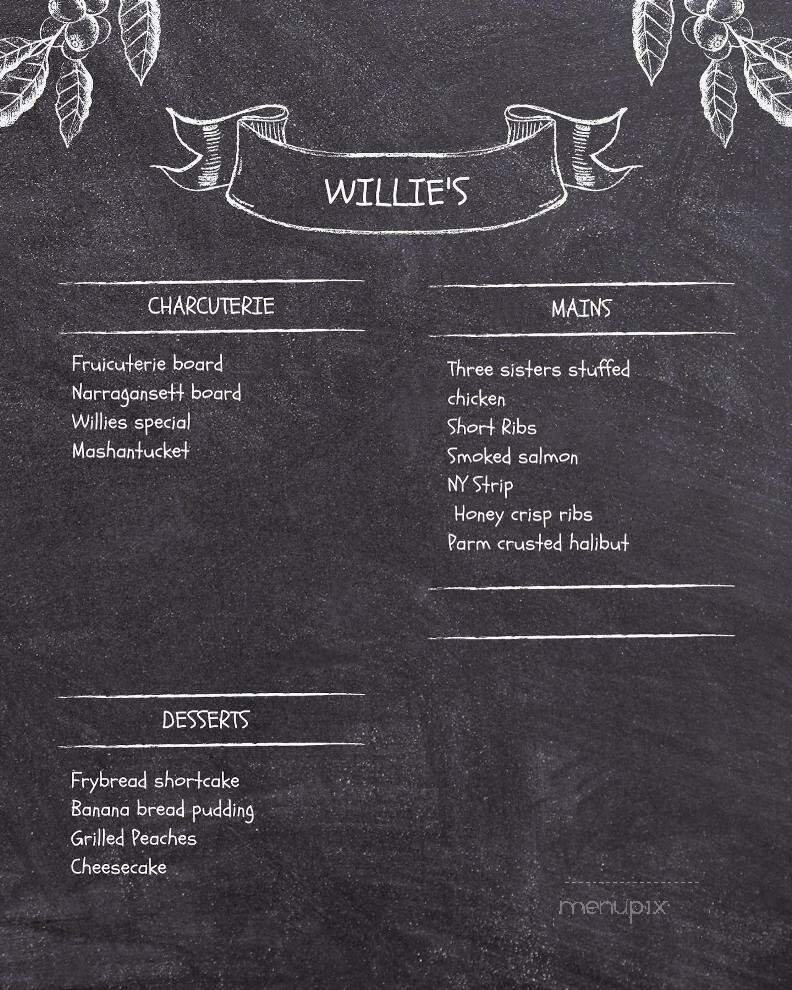 WILLIE'S
CHARCUTERIE
Fruicuterie board
Narragansett board
Willies special
Mashantucket
MAINS
Three sisters stuffed
chicken
Short Ribs
Smoked salmon
NY Strip
Honey crisp ribs
Parm crusted halibut
DESSERTS
Frybread shortcake
Banana bread pudding
Grilled Peaches
Cheesecake
menupix